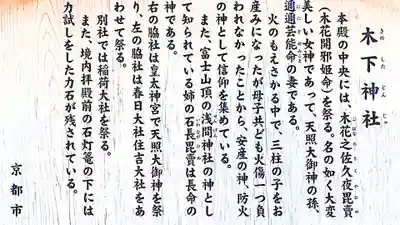 木下神社
きのしたじんじゃ
本殿の中央には、木花之佐久夜毘賣
（木花開邪姫命）を祭る。名の如く大変
美しい女神であって、天照大御神の孫、
邇邇芸能命の妻である。
火のもえさかる中で、三柱の子をお
産みになったが母子共ども火傷一つ負
われなかったことから、安産の神、防火
の神として信仰を集めている。
また、富士山頂の浅間神社の神とし
て知られている姉の石長毘賣は長命の
神である。
右の脇社は皇太神宮で天照大御神を祭
り、左の脇社は春日大社住吉大社をあ
わせて祭る。
別社では稲荷大社を祭る。
また、境内拝殿前の石灯篭の下には
力試しをした力石が残されている。
京都市